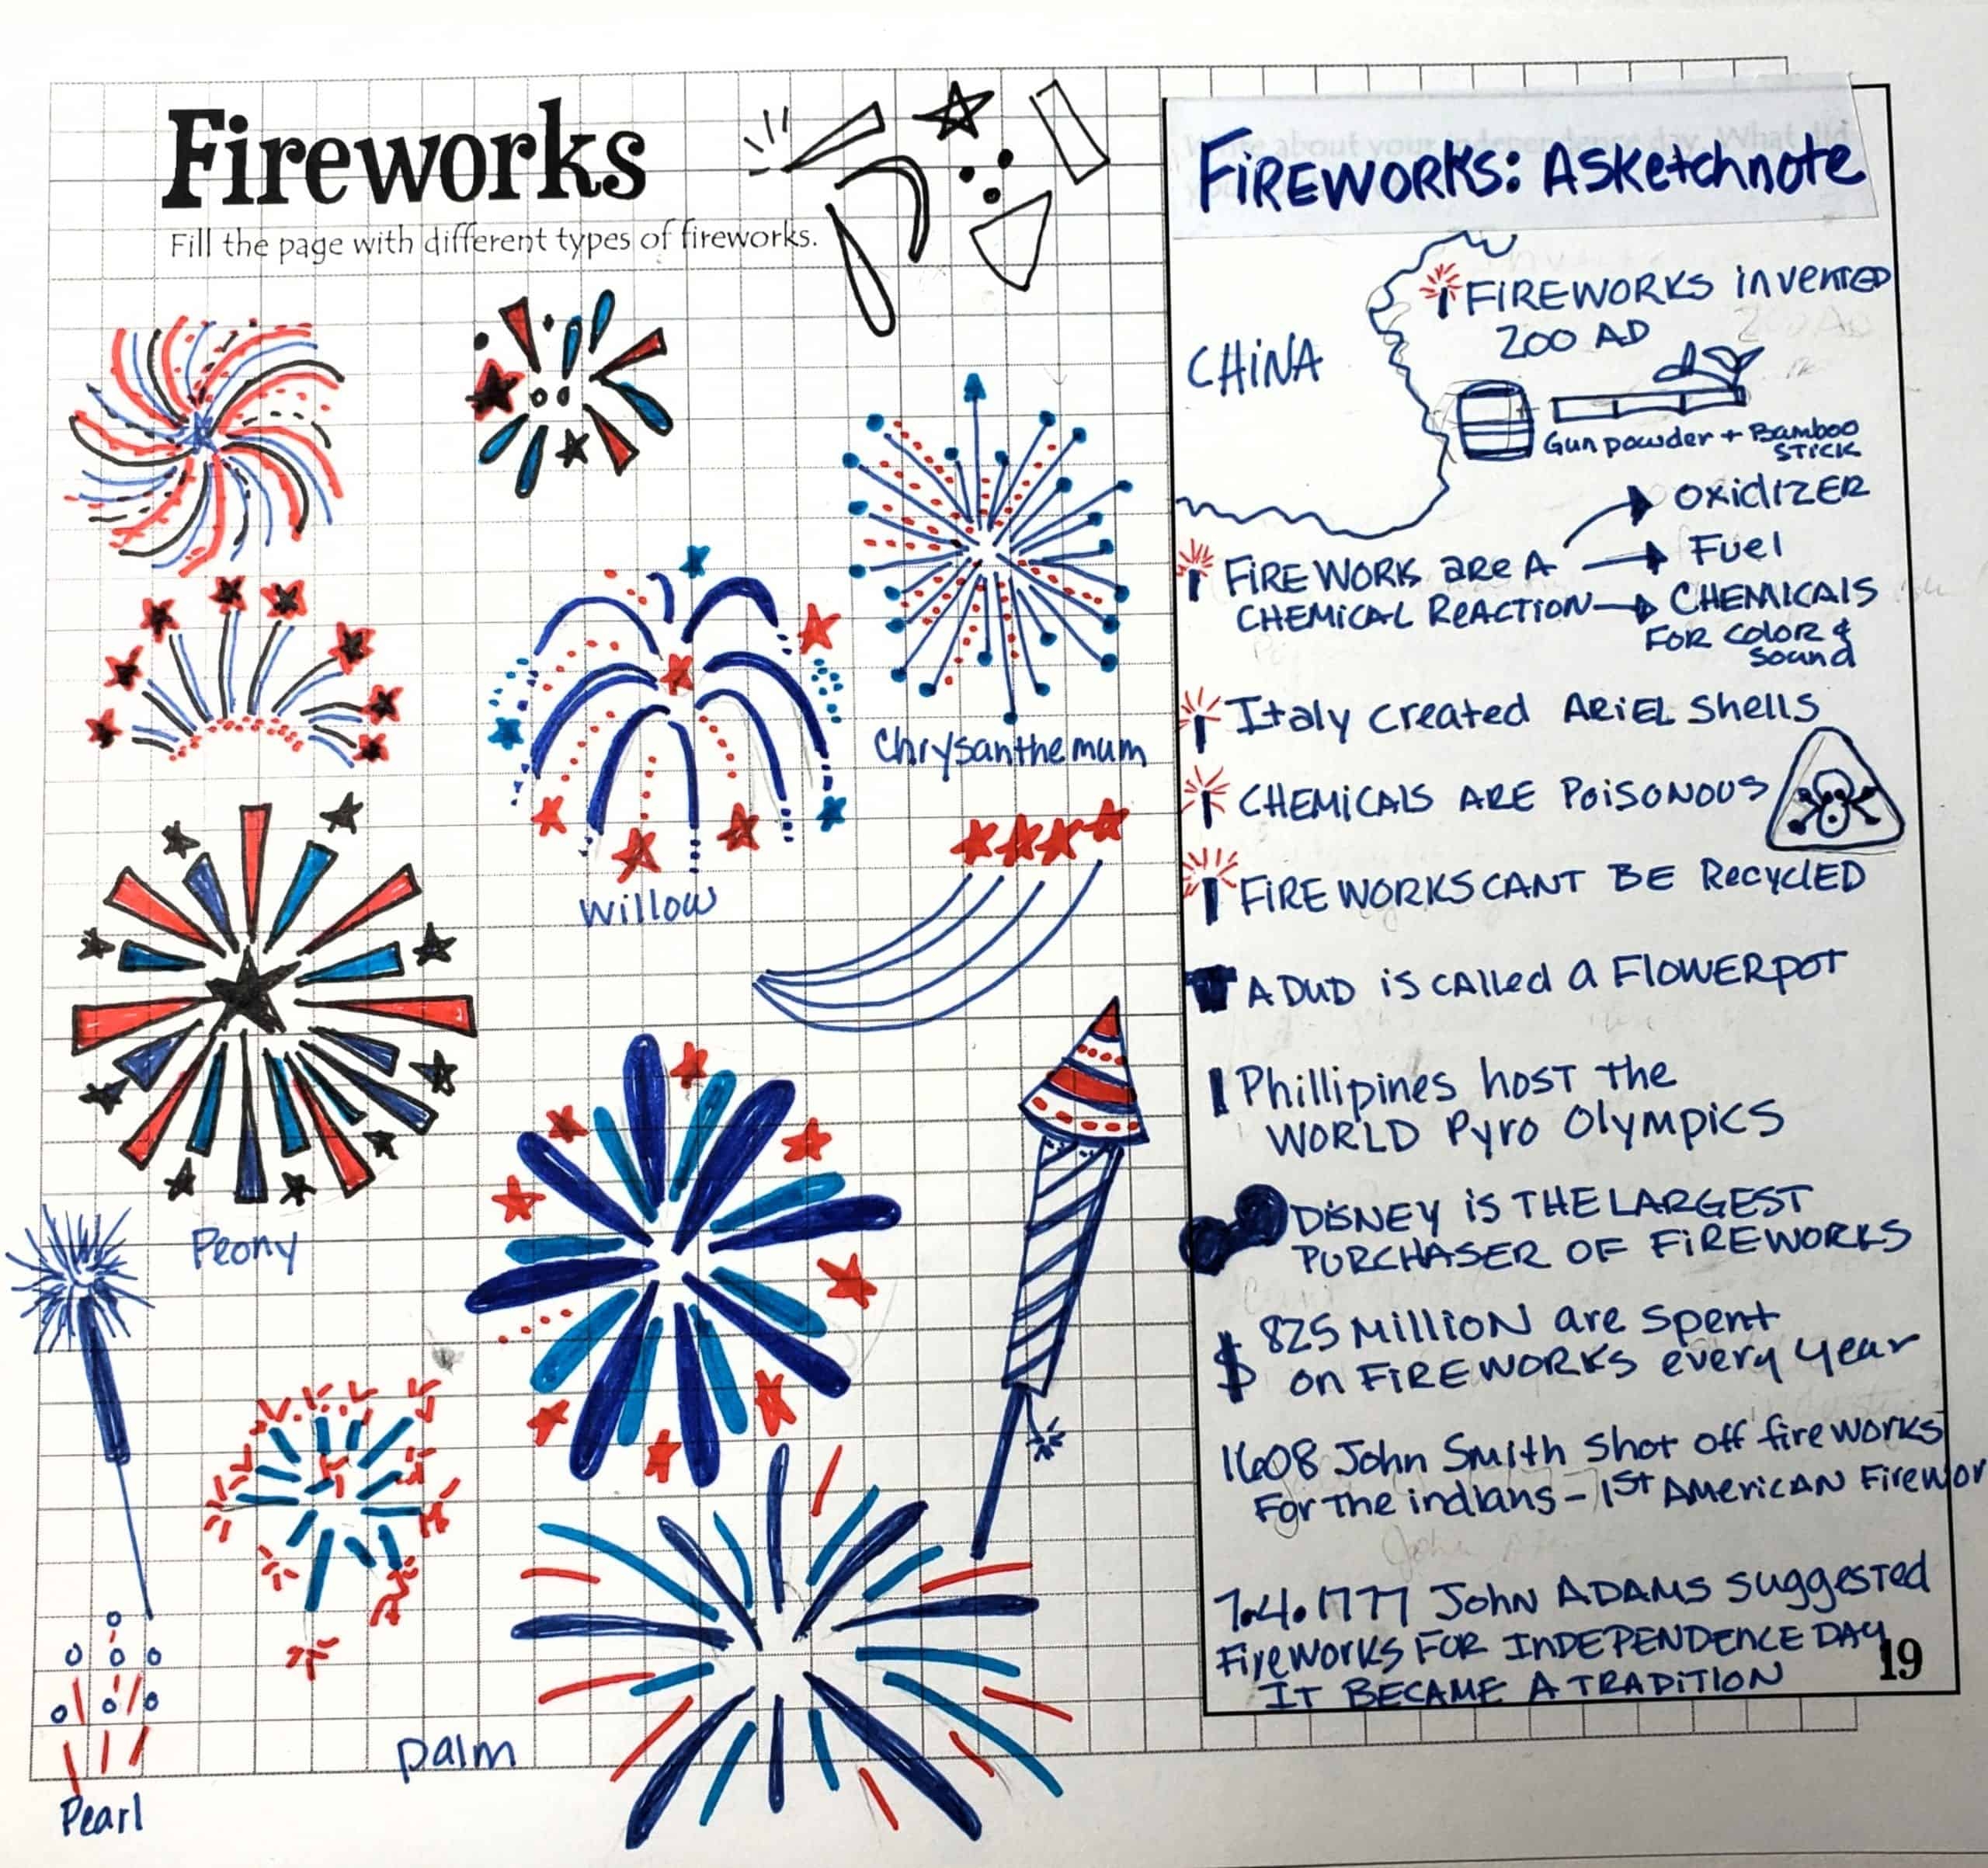 Fireworks
Fill the page with different types of fireworks.
Chrysanthemum
Willow
Peony
Palm
Pearl
FIREWORKS: A Sketchnote
CHINA
FIREWORKS invented
200 AD
Gun powder + Bamboo
STICK
FIREWORK are A
CHEMICAL REACTION
OxidIZER
Fuel
CHEMICALS
FOR COLOR &
Sound
Italy created ARIEL Shells
CHEMICALS ARE POISONOUS
FIREWORKS CANT BE RecyclED
A DUD is called a FLOWERPOT
Phillipines host the
WORLD Pyro Olympics
DISNEY is THE LARGEST
PURCHASER OF FIREWORKS
$ 825 Million are spent
on FIREWORKS every year
1608 John Smith shot off fireworks
For the indians - 1st American Firewor
7.4.1777 John ADAMS suggested
Fireworks FOR INDEPENDENCE DAY
IT BECAME A TRADITION
19